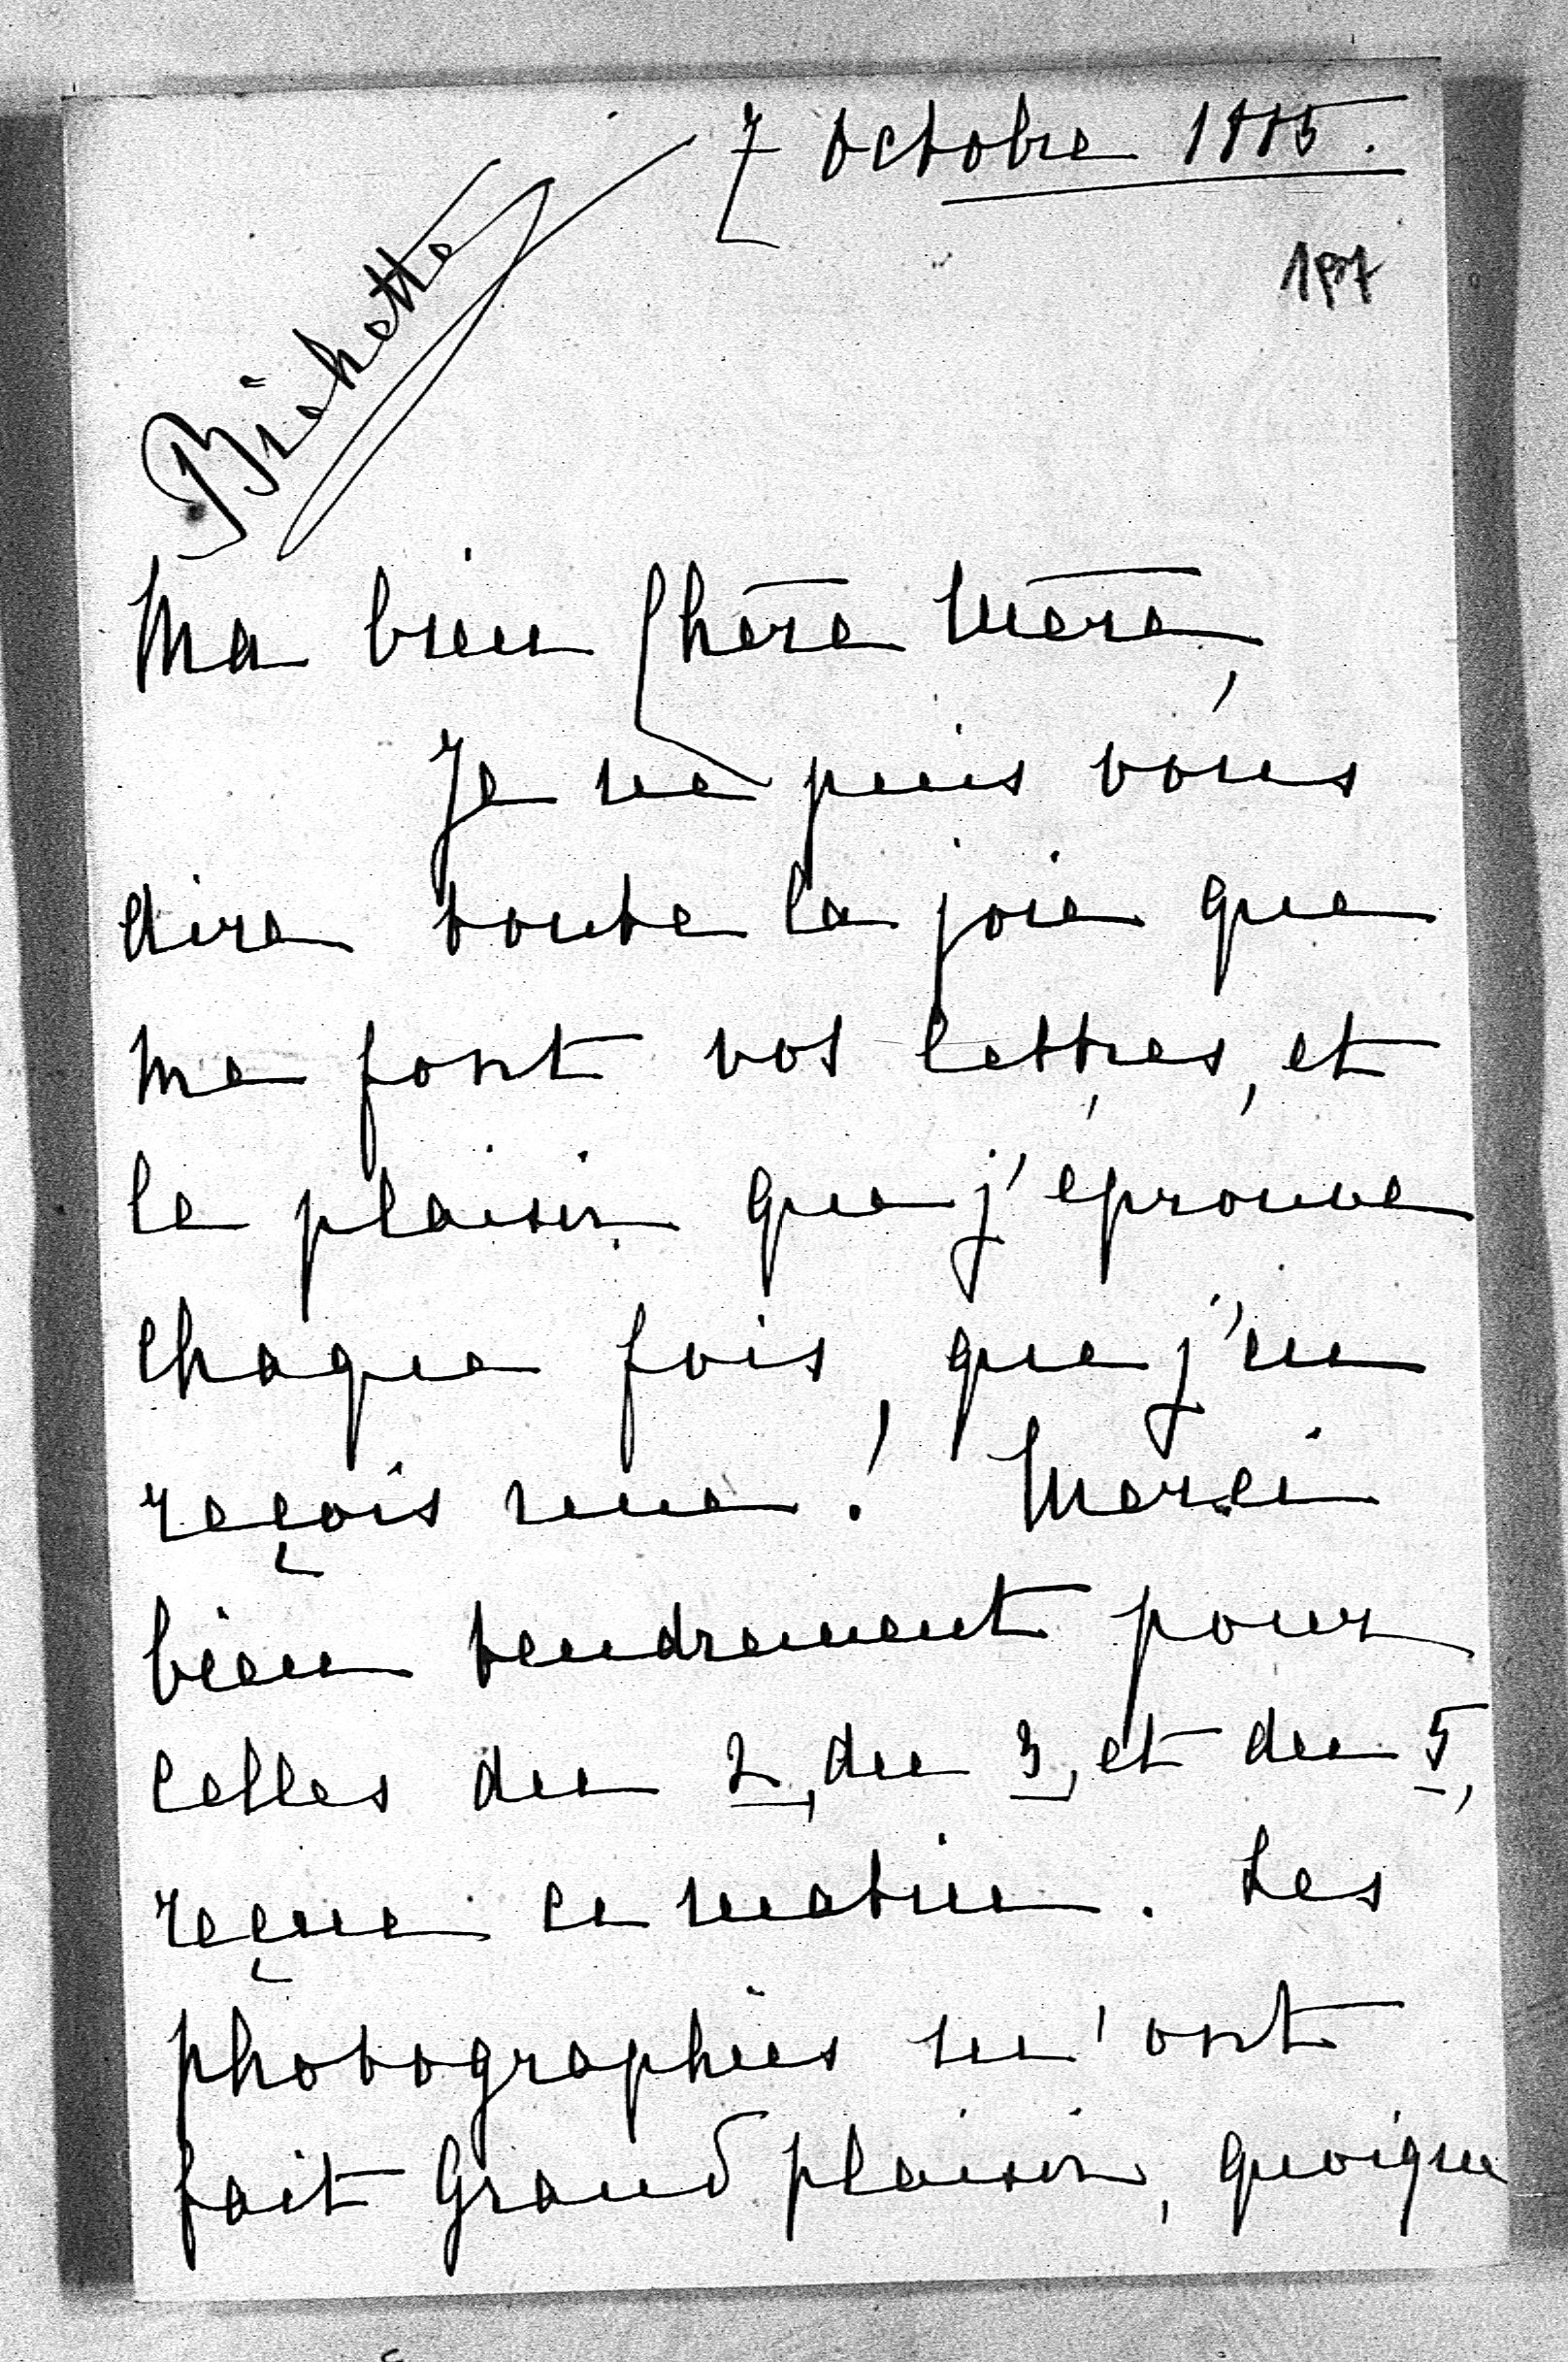 7 Octobre 1885.
Bichette
Ma bien Chère Mère,
Je ne puis vous
dire toute la joie que
me font vos lettres, et
le plaisir que j'éprouve
chaque fois, que j'en
reçois une! Merci
bien tendrement pour
celles du 2, du 3, et du 5,
reçue ce matin. Les
photographies m'ont
fait Grand plaisir, quoique